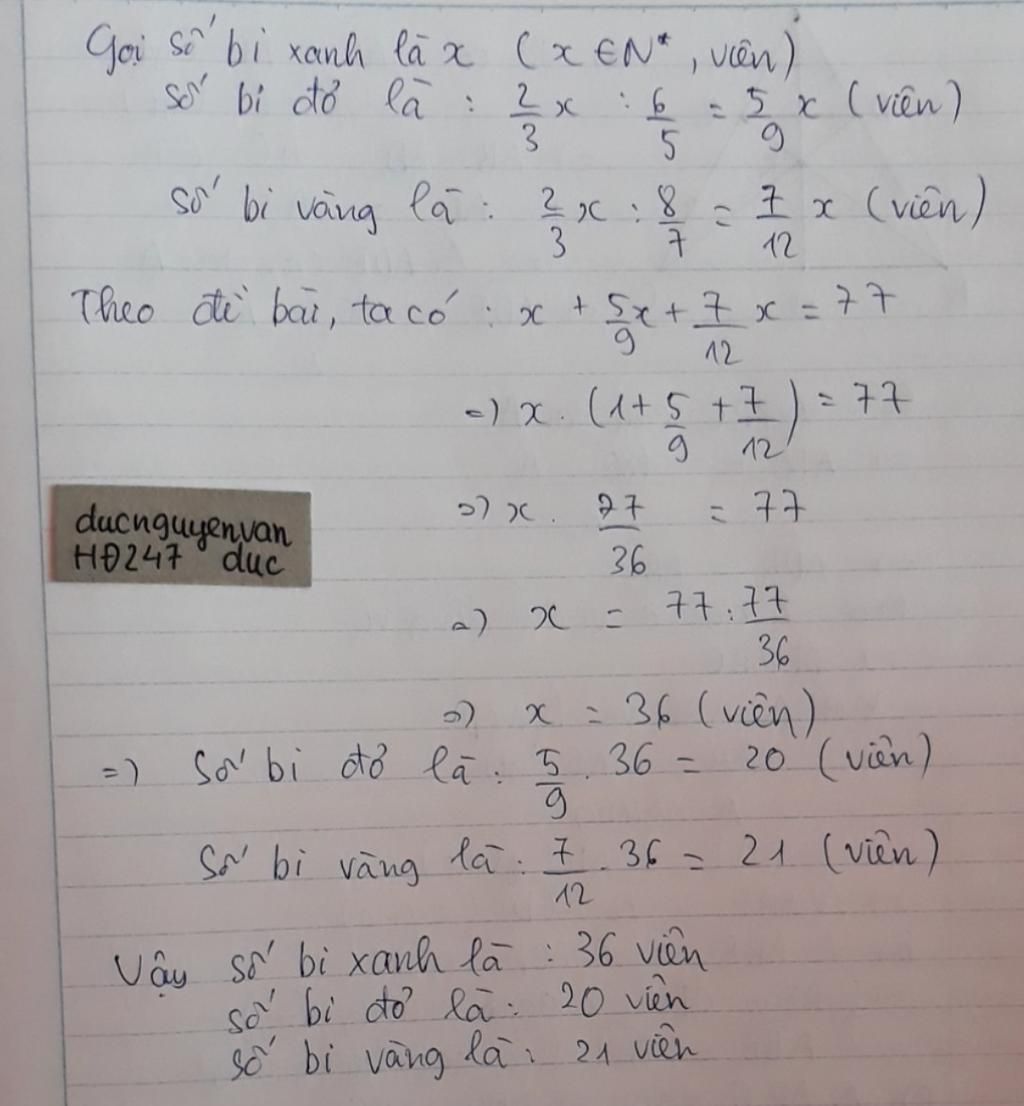 Gọi số bi xanh là x (x ∈ N*, viên)
số bi đỏ là : 2/3 x : 6/5 = 5/9 x (viên)
số bi vàng là : 2/3 x : 8/7 = 7/12 x (viên)
Theo đề bài, ta có : x + 5/9 x + 7/12 x = 77
=) x . (1 + 5/9 + 7/12) = 77
=) x . 77/36 = 77
=) x = 77 : 77/36
=) x = 36 (viên)
=) Số bi đỏ là : 5/9 . 36 = 20 (viên)
Số bi vàng là : 7/12 . 36 = 21 (viên)
Vậy số bi xanh là : 36 viên
số bi đỏ là : 20 viên
số bi vàng là : 21 viên
ducnguyenvan
HĐ247 duc